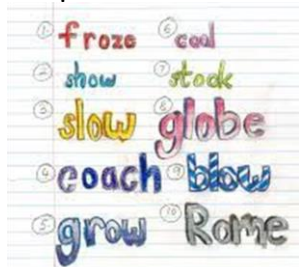 1 froze
2 show
3 slow
4 coach
5 grow
6 coal
7
8 globe
9 blow
10 Rome